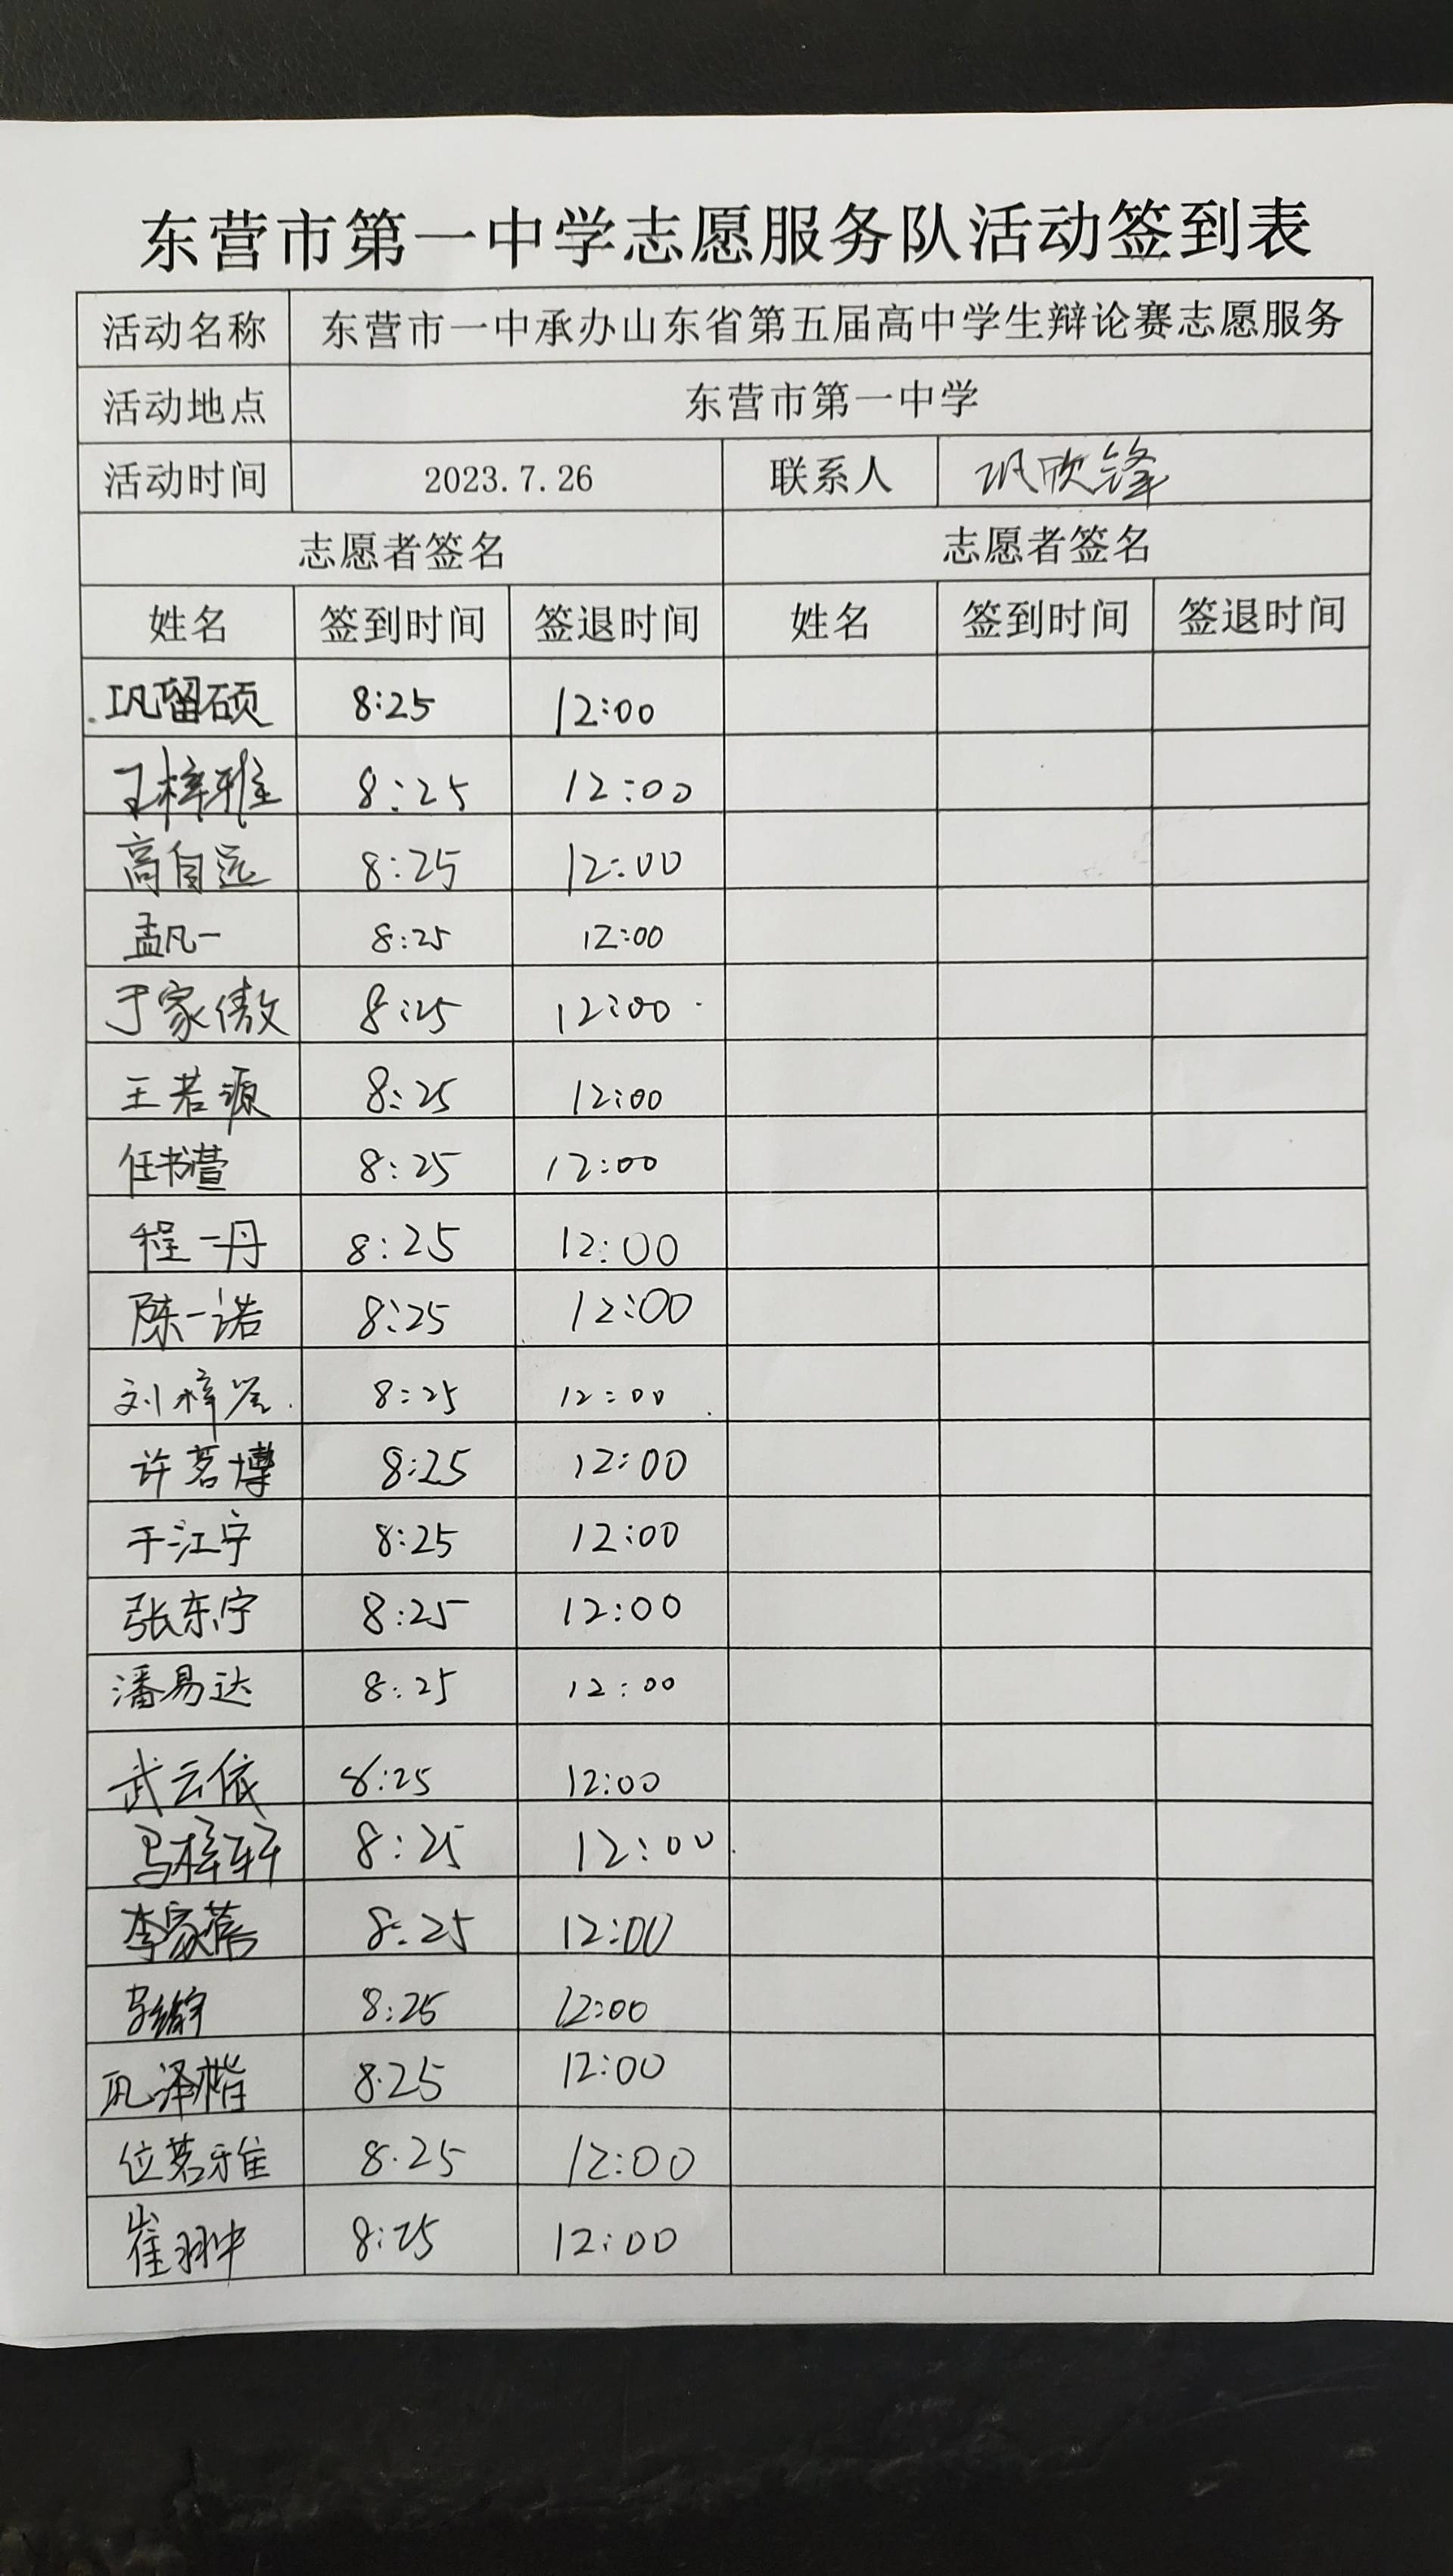 东营市第一中学志愿服务队活动签到表
活动名称 东营市一中承办山东省第五届高中学生辩论赛志愿服务
活动地点 东营市第一中学
活动时间 2023.7.26 联系人 巩欣锋
志愿者签名 志愿者签名
姓名 签到时间 签退时间 姓名 签到时间 签退时间
巩留硕 8:25 12:00
王梓雅 8:25 12:00
高自远 8:25 12:00
孟凡一 8:25 12:00
于家傲 8:25 12:00
王若源 8:25 12:00
任书萱 8:25 12:00
程一丹 8:25 12:00
陈一诺 8:25 12:00
刘梓 8:25 12:00
许茗博 8:25 12:00
于江宁 8:25 12:00
张东宁 8:25 12:00
潘易达 8:25 12:00
武云依 8:25 12:00
马梓轩 8:25 12:00
李家蓓 8:25 12:00
8:25 12:00
巩泽楷 8.25 12:00
位茗雅 8.25 12:00
崔翀 8:25 12:00